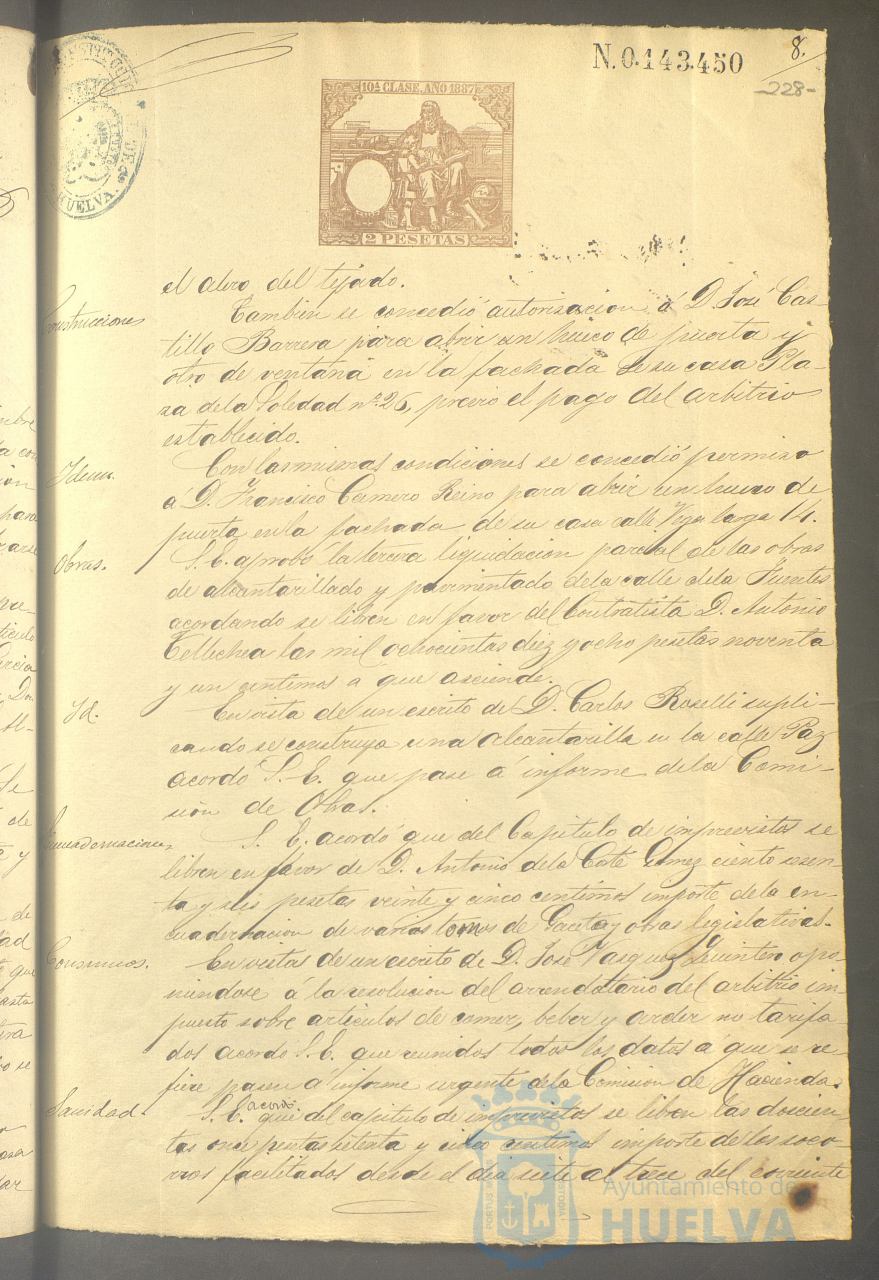 N. 0.143.450
8.
-228-
10ª CLASE. AÑO 1887
2 PESETAS
HUELVA.
el alero del tejado.
Construcciones
Tambien se concedió autorizacion á D. José Cas-
tillo Barrera para abrir un hueco de puerta y
otro de ventana en la fachada de su casa Pla-
za de la Soledad nº 26, previo el pago del arbitrio
establecido.
Idem.
Con las mismas condiciones se concedió permiso
á D. Francisco Camero Reino para abrir un hueco de
puerta en la fachada de su casa calle Vega larga 14.
Obras.
S. E. aprobó la tercera liquidacion parcial de las obras
de alcantarillado y pavimentado de la calle de la Fuentes
acordando se libren en favor del Contratista D. Antonio
Tellechea las mil ochocientas diez y ocho pesetas noventa
y un centimos a que asciende.
Id.
En vista de un escrito de D. Carlos Roselli supli-
cando se construya una alcantarilla en la calle Paz
acordó S. E. que pase á informe de la Comi-
sion de Obras.
Encuadernaciones
S. E. acordó que del Capitulo de imprevistos se
libren en favor de D. Antonio de la Corte Gomez ciento sesen-
ta y seis pesetas veinte y cinco centimos importe de la en-
cuadernacion de varios tomos de Gaceta y obras legislativas.
Consumos.
En vista de un escrito de D. José Vasquez opo-
niendose á la resolucion del arrendatario del arbitrio im-
puesto sobre articulos de comer, beber y arder no tarifa-
dos acordó S. E. que reunidos todos los datos á que se re-
fiere pasen á informe urgente de la Comision de Hacienda.
Sanidad.
S. E. acordó que del capitulo de imprevistos se libren las doscien-
tas once pesetas setenta y cinco centimos importe de los soco-
rros facilitados desde el dia siete al trece del corriente
Ayuntamiento de
HUELVA